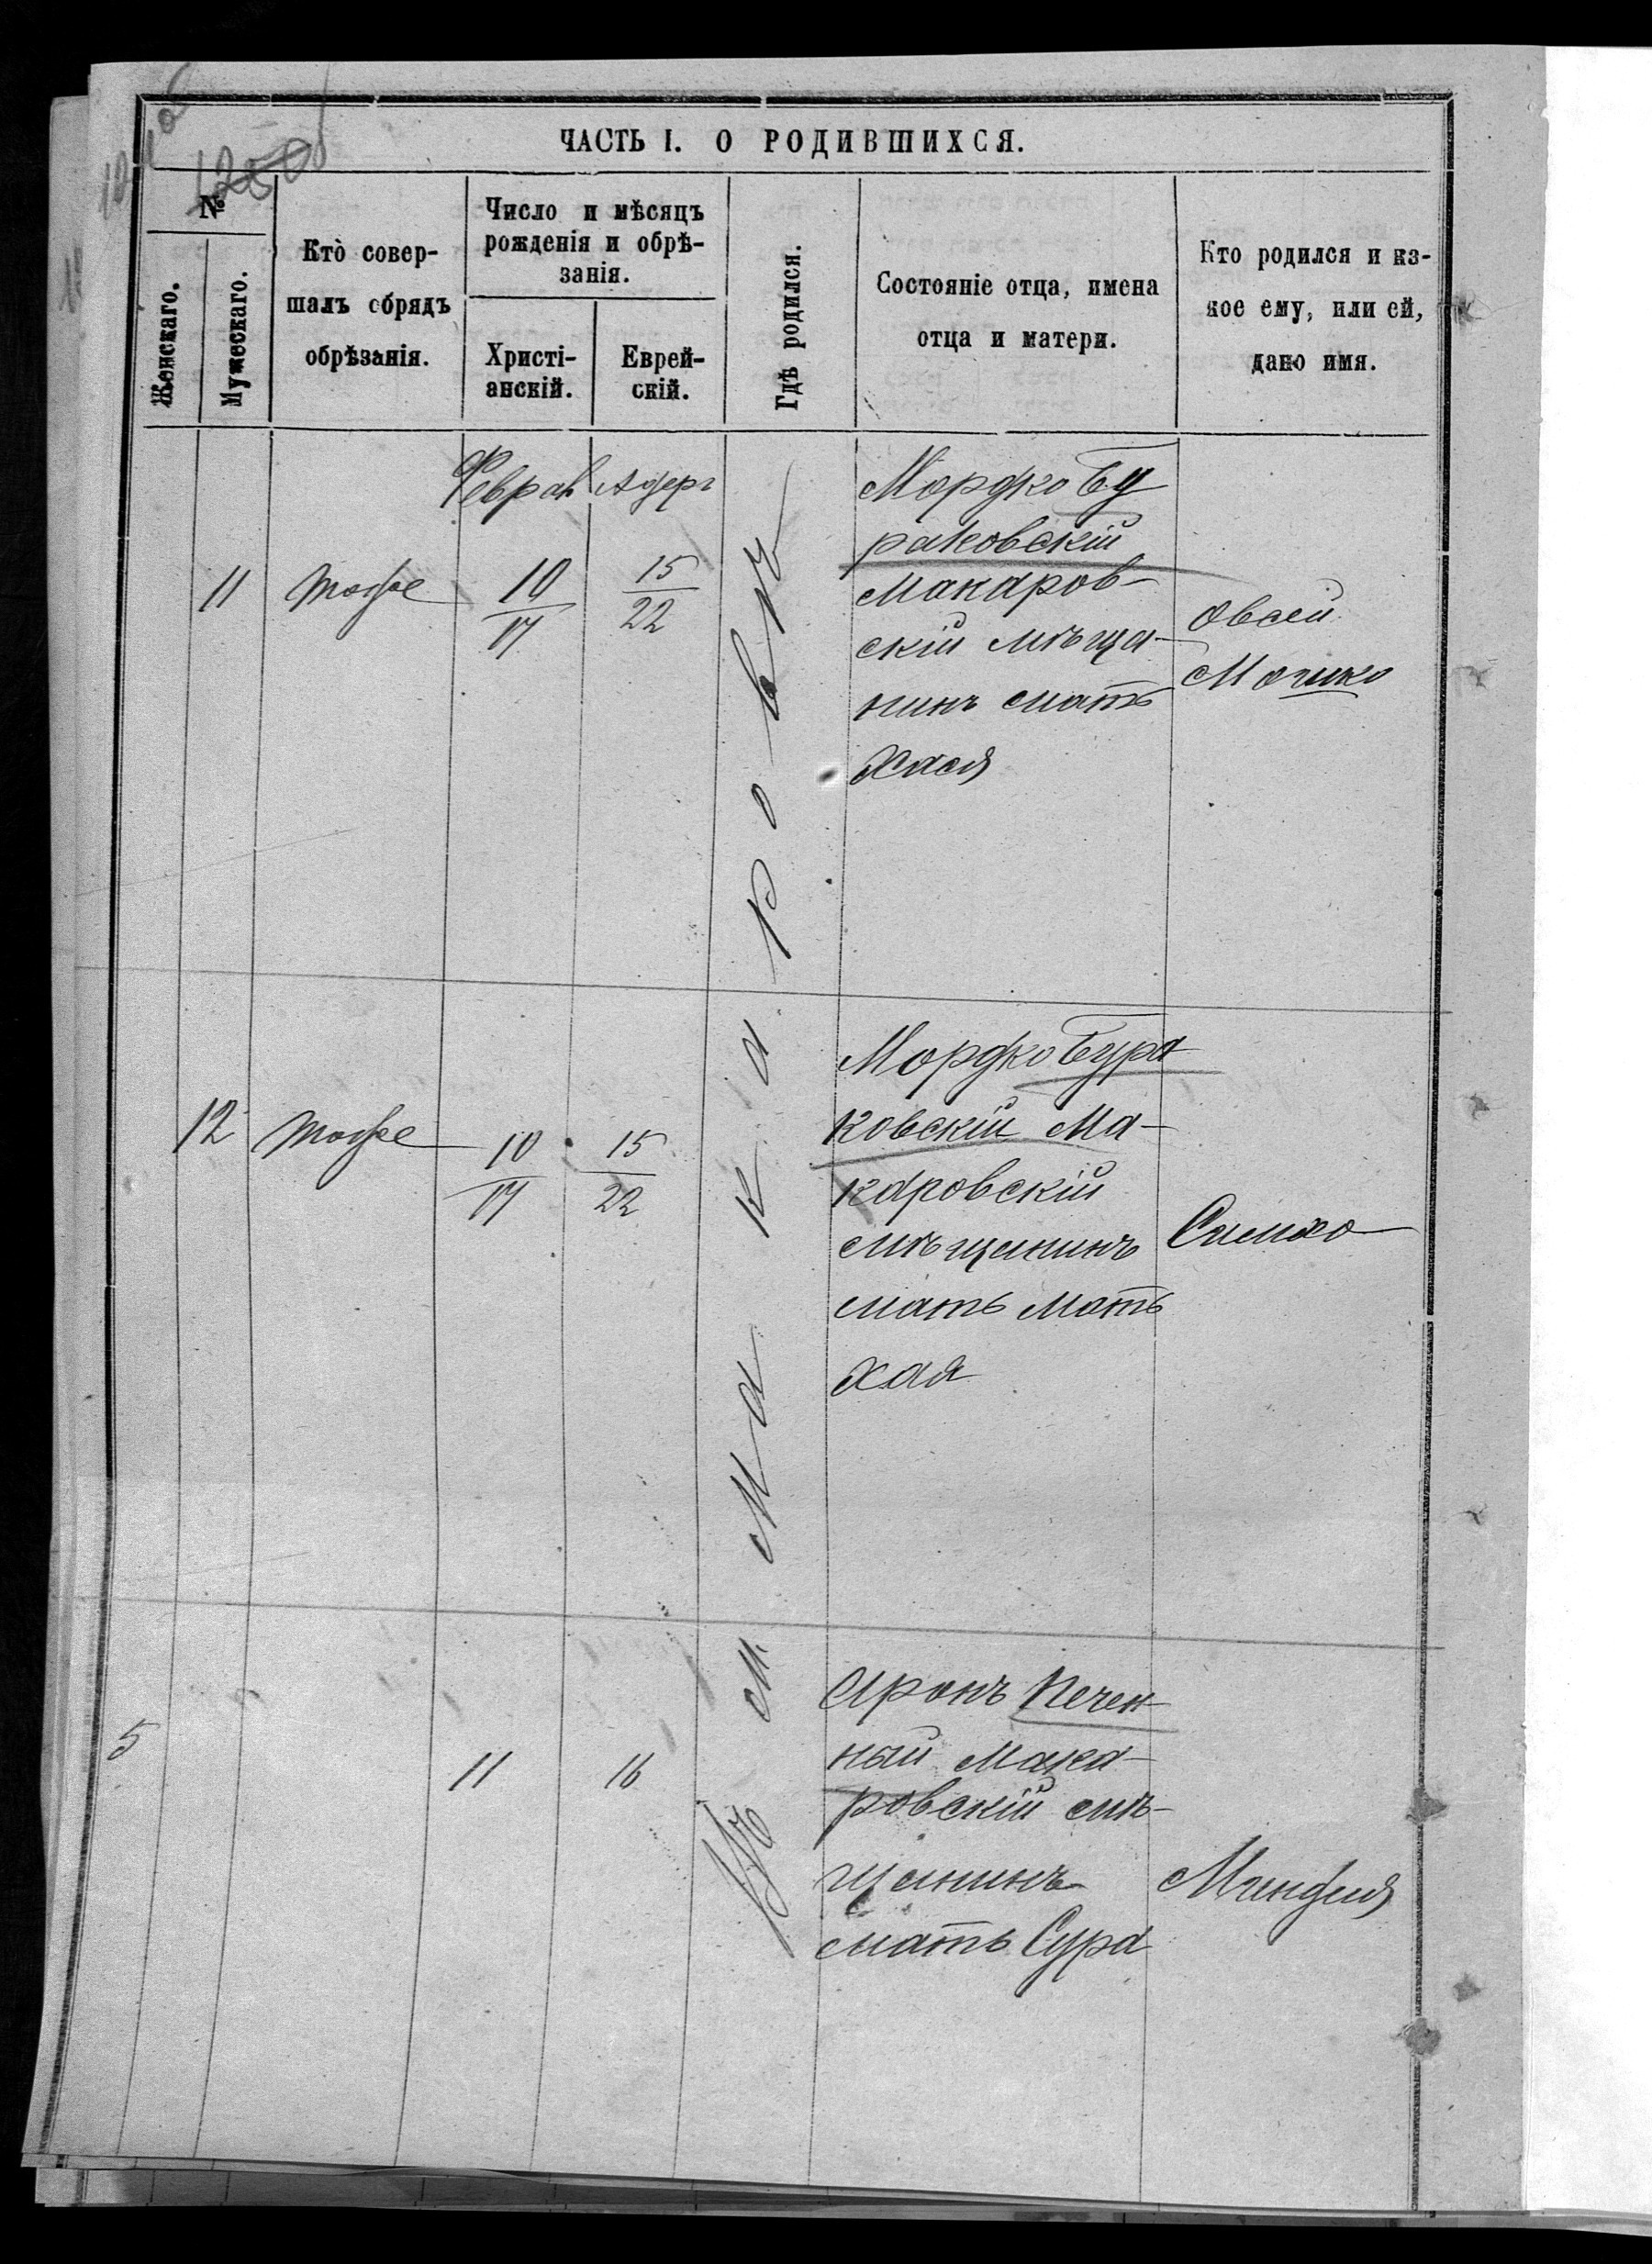 ЧАСТЬ I. О РОДИВШИХСЯ.
№
Женскаго.
Мужескаго.
Кто̀ совер-
шалъ обрядъ
обрѣзанія.
Число и мѣсяцъ
рожденія и обрѣ-
занія.
Христі-
анскій.
Еврей-
скій.
Гдѣ родился.
Состояніе отца, имена
отца и матери.
Кто родился и ка-
кое ему, или ей,
дано имя.
Феврал Адеръ
11
тоже
10
17
15
22
Мордко Бу
раковскій
Макаров-
скій мѣща-
нинъ мать
Хася
Овсей
Мошко
Въ м. Макаровѣ
12
тоже
10
17
15
22
Мордко Бура
ковскій Ма-
каровскій
мѣщанинъ
мать мать
Хая
Симхо
5
11
16
Аронъ Печен-
ный Мака-
ровскій мѣ-
щанинъ
мать Сура
Миндля